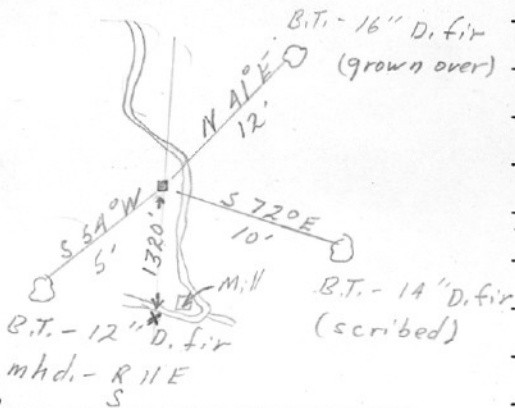 B.T.- 16" D. fir
(grown over)
N 41° E
12'
S 54° W
5'
1320'
S 72° E
10'
Mill
B.T.- 14" D. fir
(scribed)
B.T.- 12" D. fir
mhd.- R 11 E
S